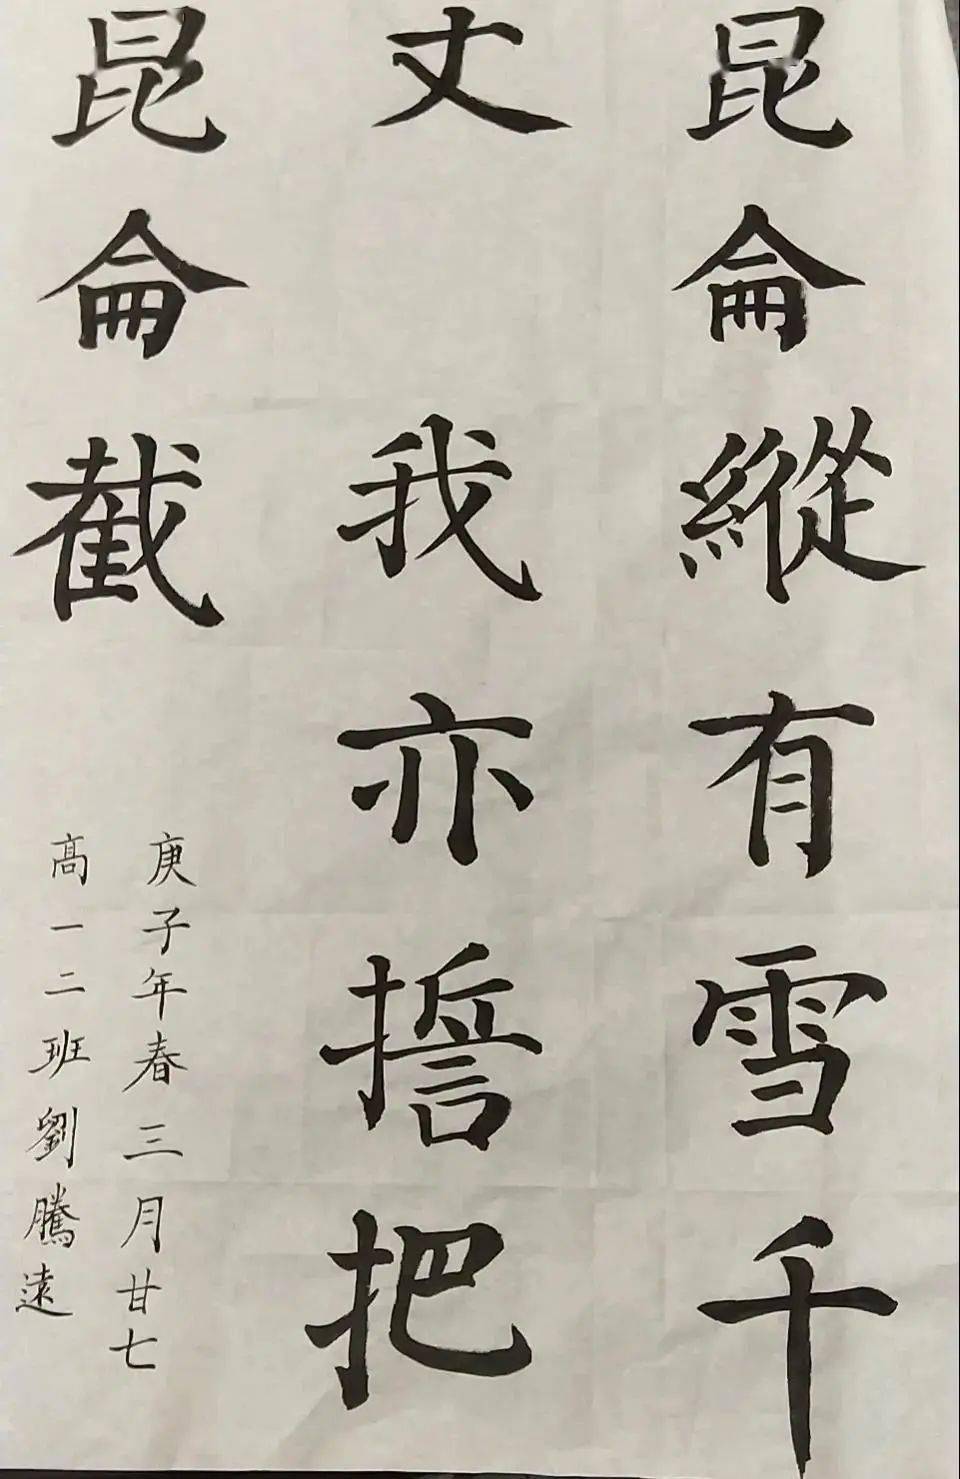 昆侖縱有雪千
丈 我亦誓把
昆侖截
庚子年春三月廿七
高一二班劉騰遠